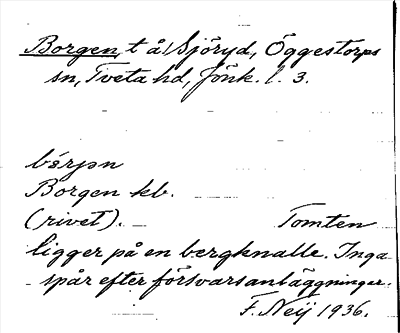 Borgen, t å Sjöryd, Öggestorps
sn, Tveta hd, Jönk. l. 3.
bórjən
Borgen kb.
(rivet). Tomten
ligger på en bergknalle. Inga
spår efter försvarsanläggningar.
F. Neij 1936.